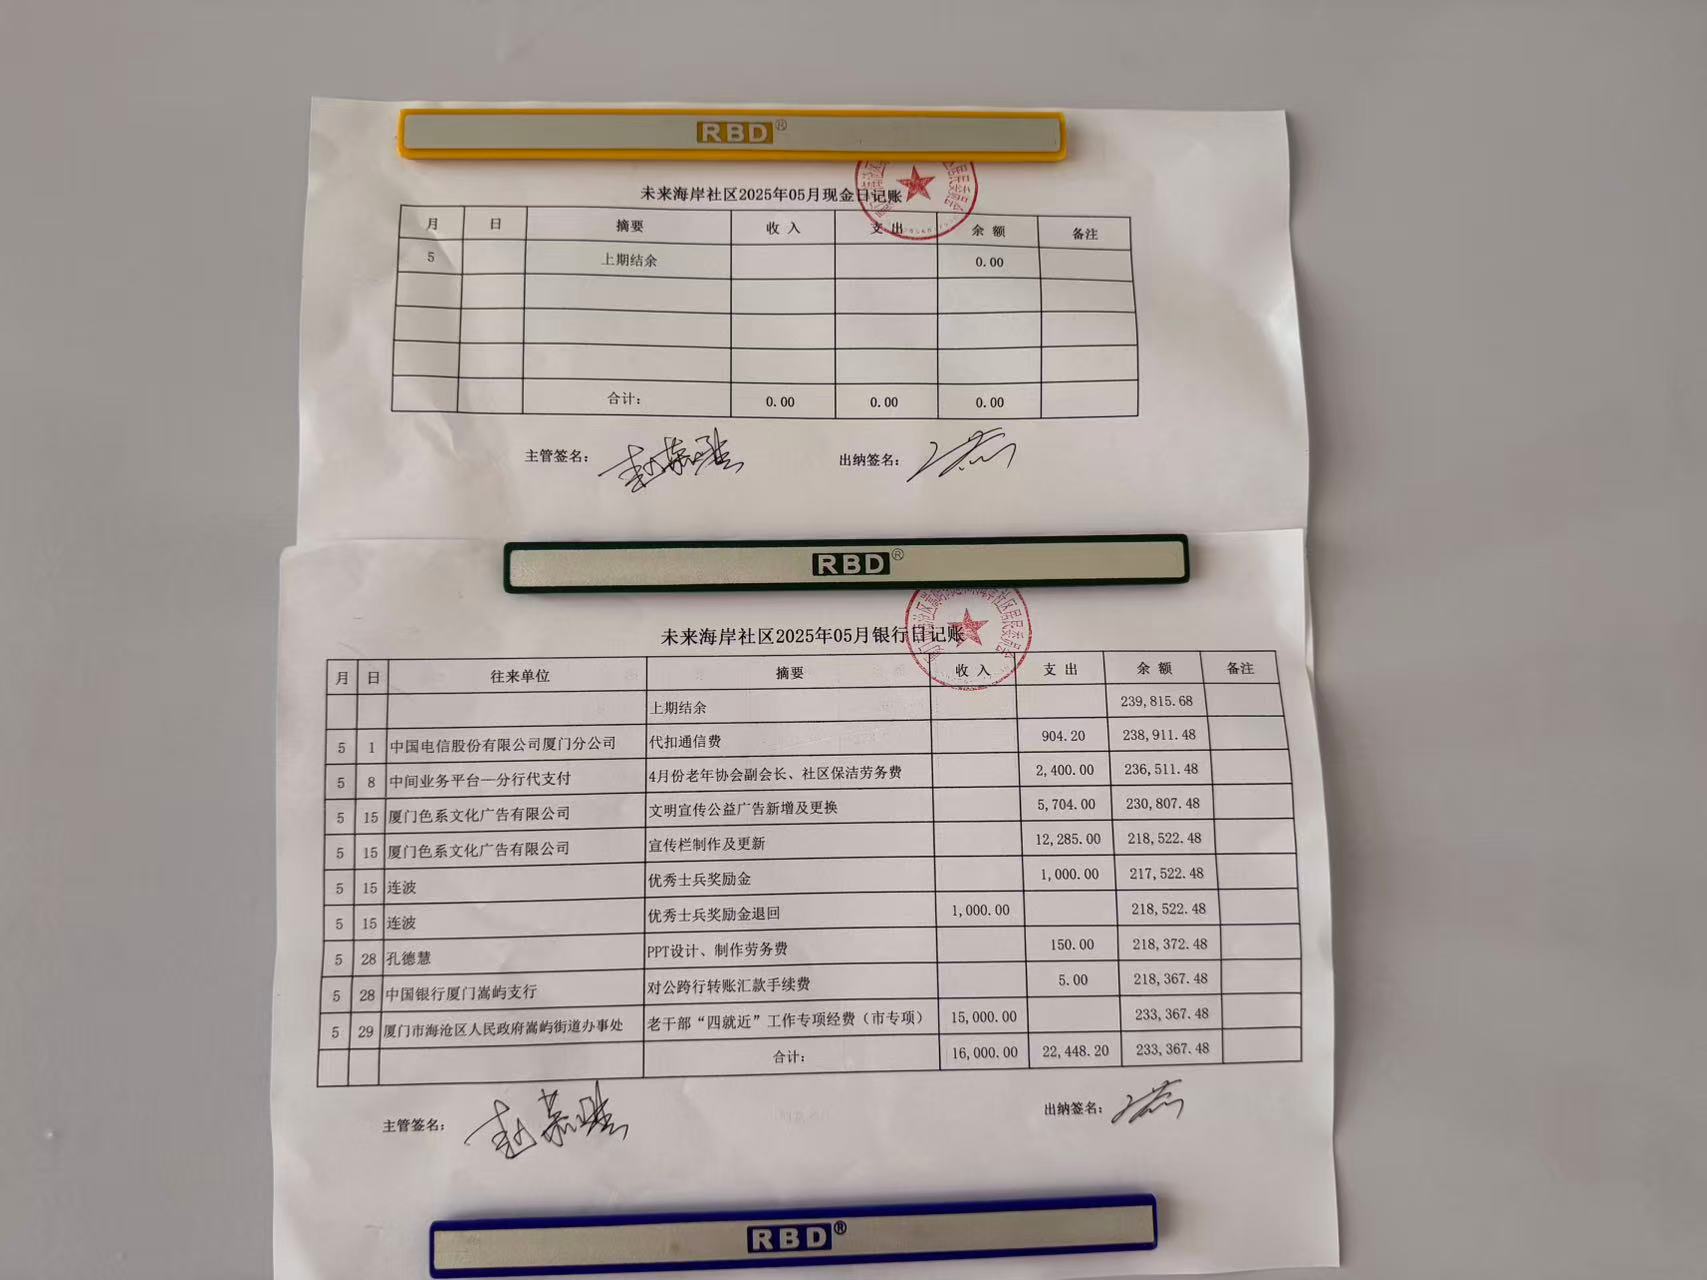 RBD®
未来海岸社区2025年05月现金日记账
月 日 摘要 收 入 支 出 余 额 备注
5 上期结余 0.00
合计： 0.00 0.00 0.00
主管签名： 出纳签名：
RBD®
未来海岸社区2025年05月银行日记账
月 日 往来单位 摘要 收 入 支 出 余 额 备注
上期结余 239,815.68
5 1 中国电信股份有限公司厦门分公司 代扣通信费 904.20 238,911.48
5 8 中间业务平台—分行代支付 4月份老年协会副会长、社区保洁劳务费 2,400.00 236,511.48
5 15 厦门色系文化广告有限公司 文明宣传公益广告新增及更换 5,704.00 230,807.48
5 15 厦门色系文化广告有限公司 宣传栏制作及更新 12,285.00 218,522.48
5 15 连波 优秀士兵奖励金 1,000.00 217,522.48
5 15 连波 优秀士兵奖励金退回 1,000.00 218,522.48
5 28 孔德慧 PPT设计、制作劳务费 150.00 218,372.48
5 28 中国银行厦门嵩屿支行 对公跨行转账汇款手续费 5.00 218,367.48
5 29 厦门市海沧区人民政府嵩屿街道办事处 老干部“四就近”工作专项经费（市专项） 15,000.00 233,367.48
合计： 16,000.00 22,448.20 233,367.48
主管签名： 出纳签名：
RBD®